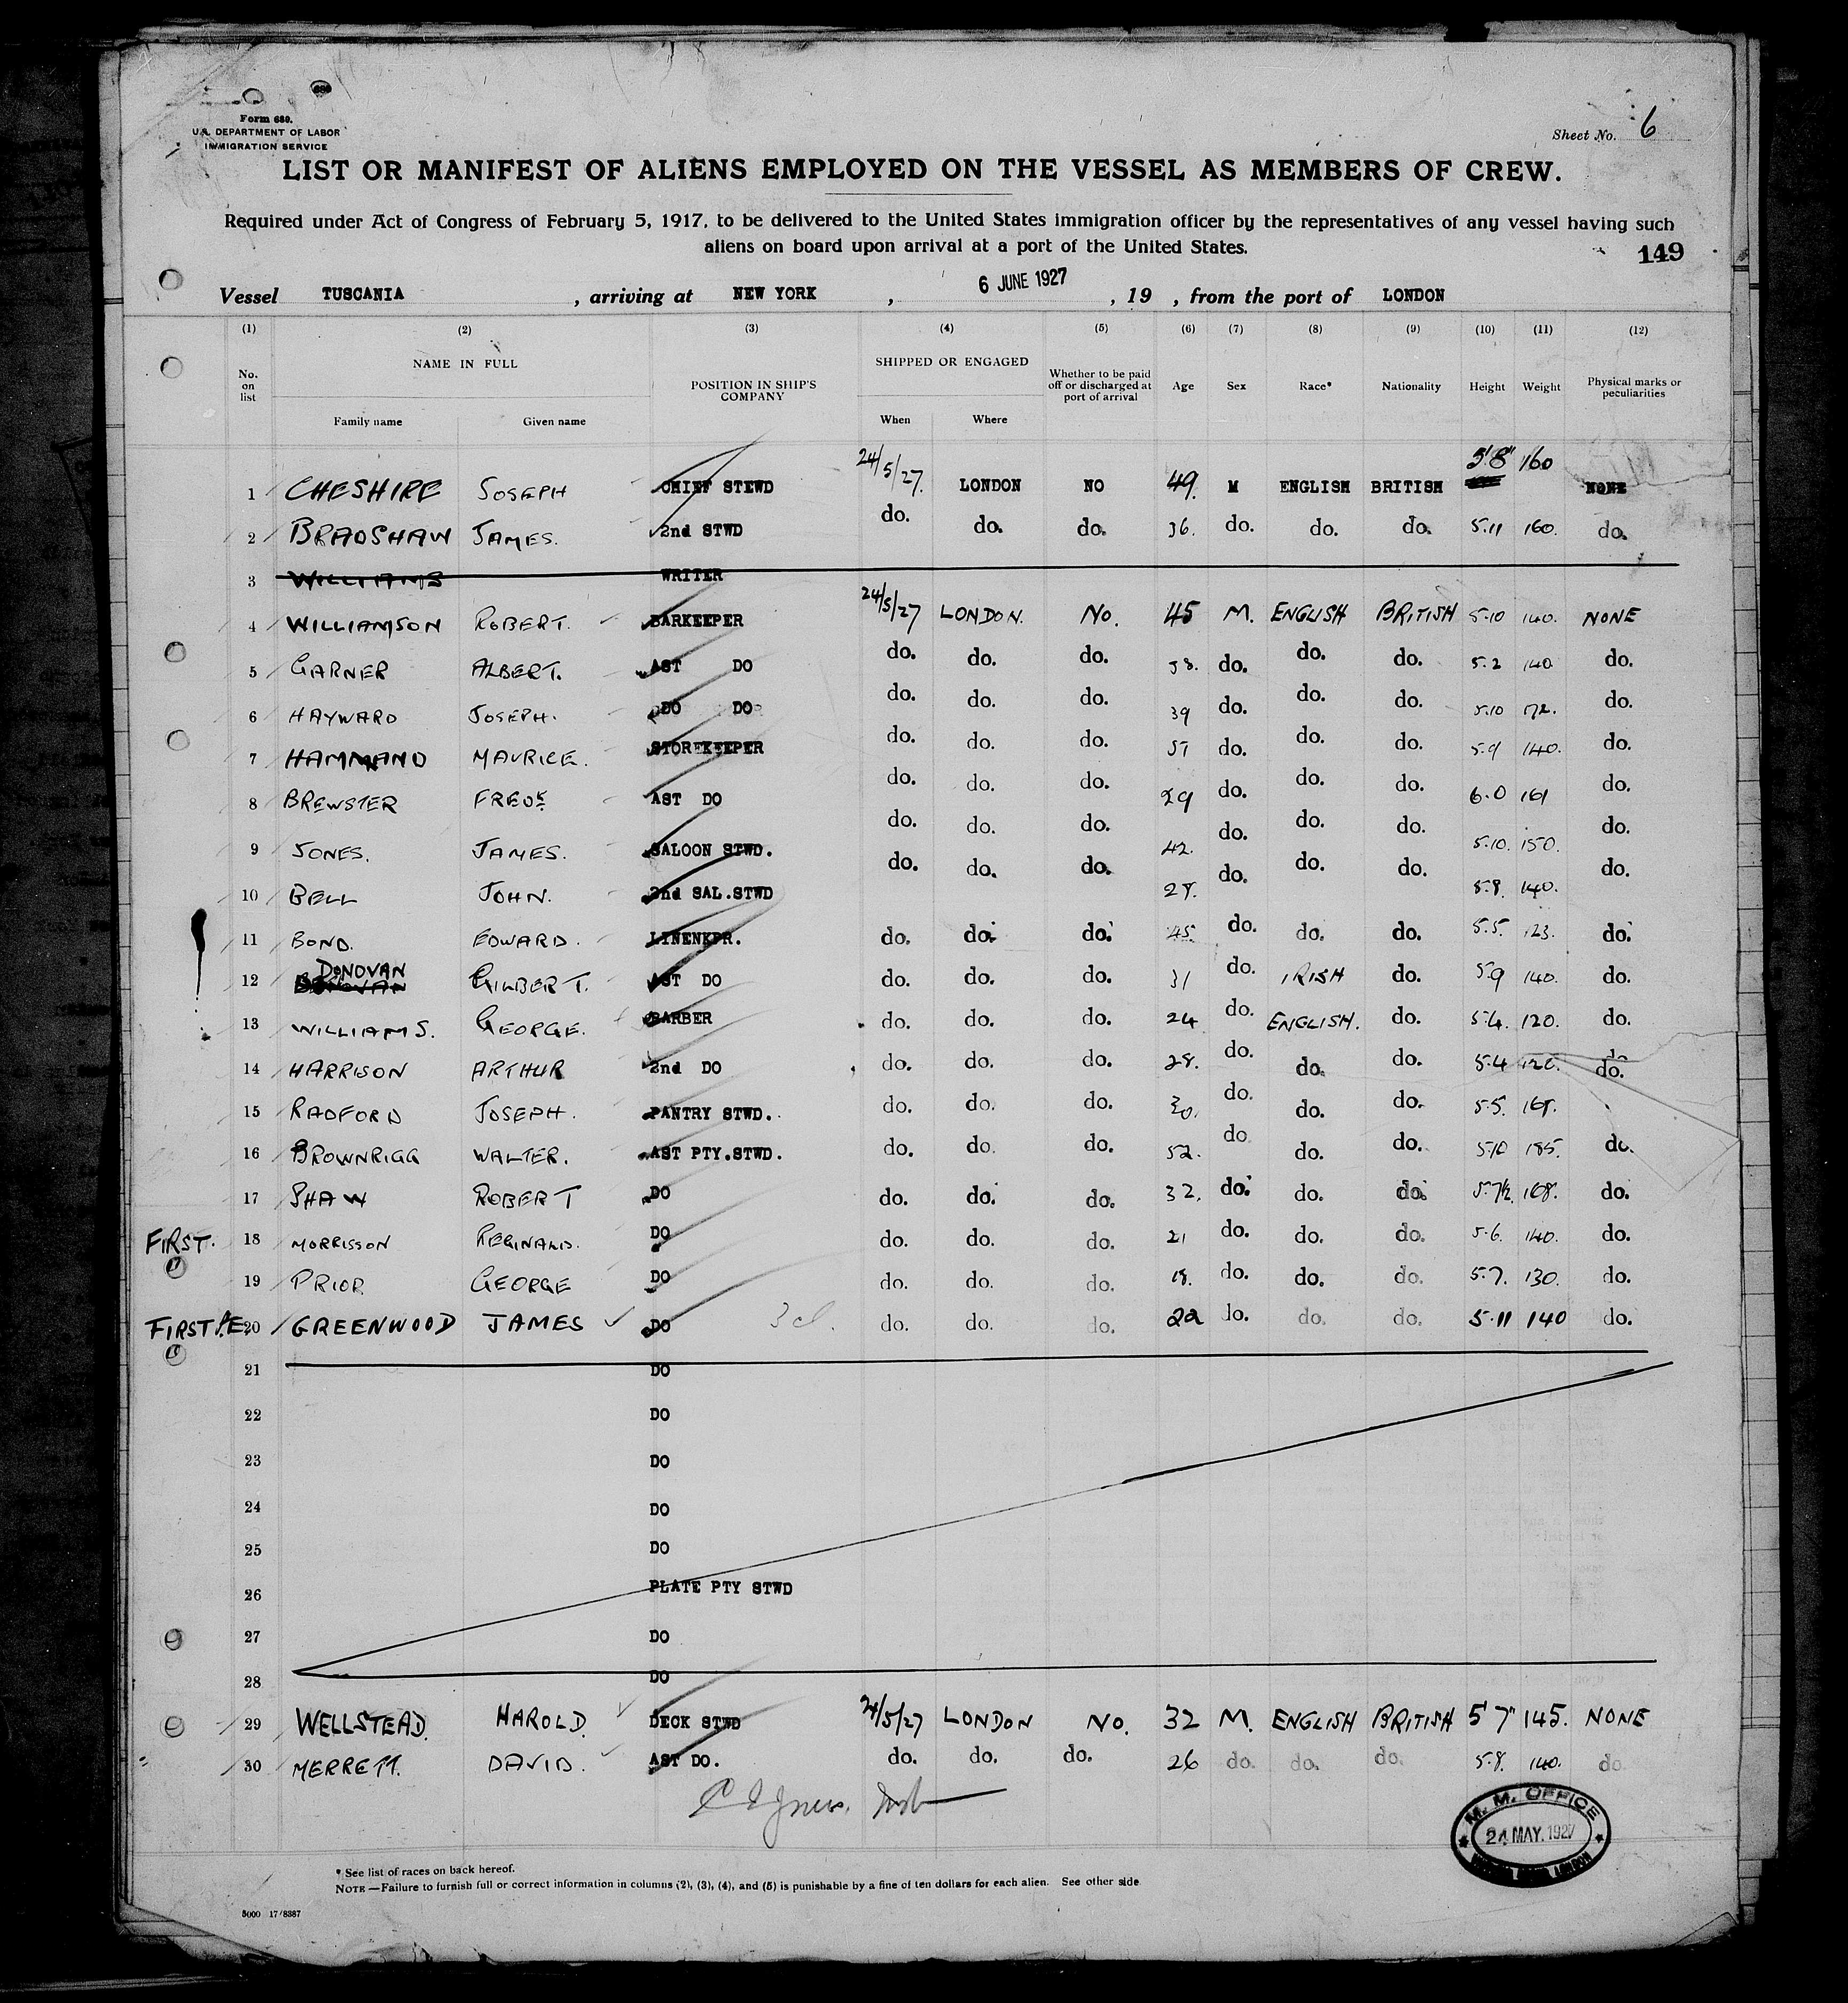 Form 689.
U.S. DEPARTMENT OF LABOR
IMMIGRATION SERVICE
Sheet No. 6
LIST OR MANIFEST OF ALIENS EMPLOYED ON THE VESSEL AS MEMBERS OF CREW.
Required under Act of Congress of February 5, 1917, to be delivered to the United States immigration officer by the representatives of any vessel having such
aliens on board upon arrival at a port of the United States.
149
Vessel TUSCANIA, arriving at NEW YORK, 6 JUNE 1927, 19 , from the port of LONDON
(1) (2) (3) (4) (5) (6) (7) (8) (9) (10) (11) (12)
No. on list NAME IN FULL POSITION IN SHIP'S COMPANY SHIPPED OR ENGAGED Whether to be paid off or discharged at port of arrival Age Sex Race* Nationality Height Weight Physical marks or peculiarities
Family name Given name When Where
1 CHESHIRE JOSEPH CHIEF STEWD 24/5/27. LONDON NO 49. M ENGLISH BRITISH 5'8" 160 NONE
2 BRADSHAW JAMES. 2nd STWD do. do. do. 36. do. do. do. 5.11 160. do.
3 WILLIAMS WRITER
4 WILLIAMSON ROBERT. BARKEEPER 24/5/27 LONDON. NO. 45 M. ENGLISH BRITISH 5.10 140. NONE
5 GARNER ALBERT. AST DO do. do. do. 38. do. do. do. 5.2 140 do.
6 HAYWARD JOSEPH. DO DO do. do. do. 39 do. do. do. 5.10 172. do.
7 HAMMAND MAURICE. STOREKEEPER do. do. do. 51 do. do. do. 5.9 140. do.
8 BREWSTER FREDK AST DO do. do. do. 29 do. do. do. 6.0 161 do.
9 JONES. JAMES. SALOON STWD. do. do. do. 42. do. do. do. 5.10. 150. do.
10 BELL JOHN. 2nd SAL.STWD do. do. do. 28. do. do. do. 5.8. 140. do.
11 BOND. EDWARD. LINENKPR. do. do. do. 45. do. do. do. 5.5. 123. do.
12 DONOVAN GILBERT. AST DO do. do. do. 31 do. IRISH do. 5.9 140. do.
13 WILLIAMS. GEORGE. BARBER do. do. do. 24 do. ENGLISH. do. 5.4. 120. do.
14 HARRISON ARTHUR 2nd DO do. do. do. 28. do. do. do. 5.4 120. do.
15 RADFORD JOSEPH. PANTRY STWD. do. do. do. 30. do. do. do. 5.5.
16 BROWNRIGG WALTER. AST PTY.STWD. do. do. do. 52. do. do. do. 5.10 185. do.
17 SHAW ROBERT DO do. do. do. 32. do. do. do. 5.7½. 168. do.
FIRST. 18 MORRISSON REGINALD. DO do. do. do. 21 do. do. do. 5.6. 140. do.
19 PRIOR GEORGE DO do. do. do. 18. do. do. do. 5.7. 130. do.
FIRST 20 GREENWOOD JAMES DO 3 cl. do. do. do. 22 do. do. do. 5.11 140 do.
21 DO
22 DO
23 DO
24 DO
25 DO
26 PLATE PTY STWD
27 DO
28 DO
29 WELLSTEAD. HAROLD DECK STWD 24/5/27 LONDON NO. 32 M. ENGLISH BRITISH 5 7" 145. NONE
30 MERRETT. DAVID. AST DO. do. do. do. 26 do. do. do. 5.8. 140. do
M. M. OFFICE
24 MAY. 1927
LONDON
* See list of races on back hereof.
NOTE.—Failure to furnish full or correct information in columns (2), (3), (4), and (5) is punishable by a fine of ten dollars for each alien. See other side.
5000 17/8387